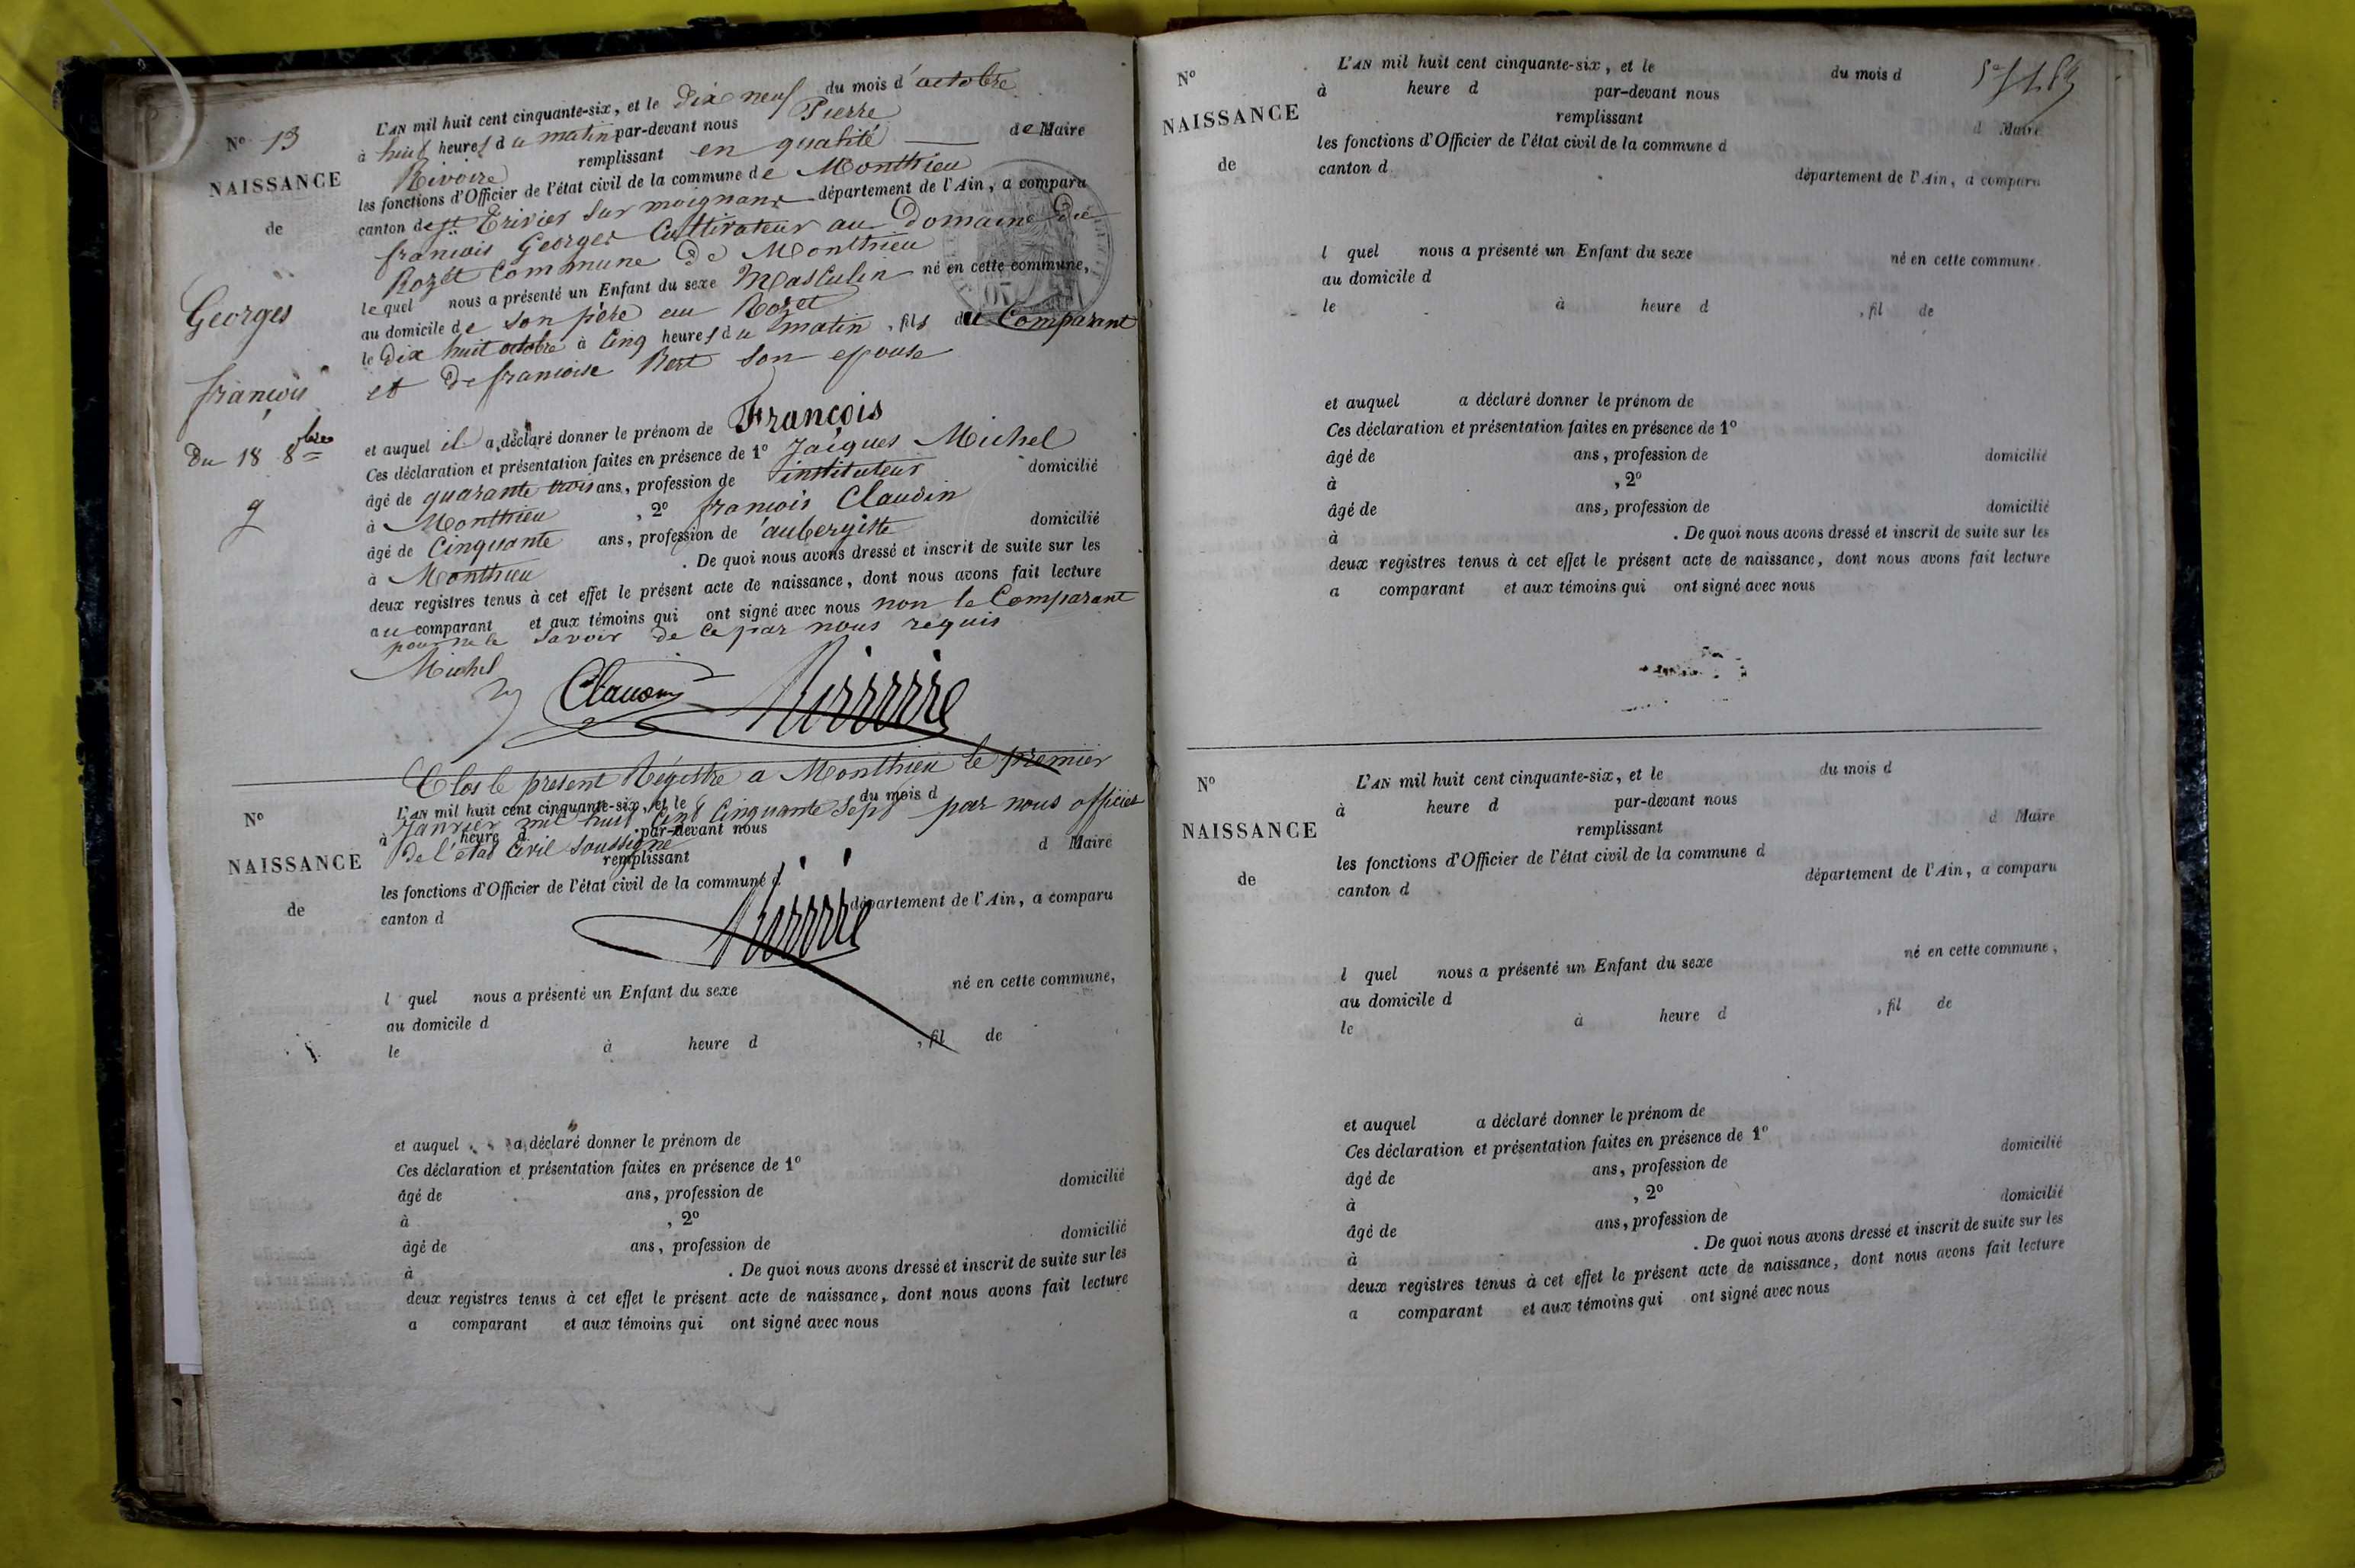 N° 13
NAISSANCE
de
Georges
françois
du 18 8bre
L'AN mil huit cent cinquante-six, et le dix neuf du mois d'octobre
à huit heures du matin par-devant nous Pierre
Rivoire remplissant en qualité de Maire
les fonctions d'Officier de l'état civil de la commune de Monthieu
canton de St Trivier sur moignans département de l'Ain, a comparu
françois Georges Cultivateur au Domaine du
Rozet Commune de Monthieu
lequel nous a présenté un Enfant du sexe Masculin né en cette commune,
au domicile de son père au Rozet
le dix huit octobre à Cinq heures du matin, fils du Comparant
et de francoise Bert son epouse
et auquel il a déclaré donner le prénom de François
Ces déclaration et présentation faites en présence de 1° Jacques Michel
âgé de quarante trois ans, profession de instituteur domicilié
à Monthieu, 2° francois Claudin
âgé de Cinquante ans, profession de aubergiste domicilié
à Monthieu. De quoi nous avons dressé et inscrit de suite sur les
deux registres tenus à cet effet le présent acte de naissance, dont nous avons fait lecture
au comparant et aux témoins qui ont signé avec nous non le Comparant
pour ne le savoir de ce par nous requis
Michel
Claudin Rivoire
Clos le present Régistre a Monthieu le premier
Janvier mil huit cent Cinquante Sept par nous officier
de l'état Civil Soussigné
Rivoire
N°
NAISSANCE
de
L'AN mil huit cent cinquante-six, et le du mois d
à heure d par-devant nous
remplissant d Maire
les fonctions d'Officier de l'état civil de la commune d
canton d département de l'Ain, a comparu
l quel nous a présenté un Enfant du sexe né en cette commune,
au domicile d
le à heure d , fil de
et auquel a déclaré donner le prénom de
Ces déclaration et présentation faites en présence de 1°
âgé de ans, profession de domicilié
à , 2°
âgé de ans, profession de domicilié
à . De quoi nous avons dressé et inscrit de suite sur les
deux registres tenus à cet effet le présent acte de naissance, dont nous avons fait lecture
a comparant et aux témoins qui ont signé avec nous
N°
NAISSANCE
de
L'AN mil huit cent cinquante-six, et le du mois d
à heure d par-devant nous
remplissant d Maire
les fonctions d'Officier de l'état civil de la commune d
canton d département de l'Ain, a comparu
l quel nous a présenté un Enfant du sexe né en cette commune.
au domicile d
le à heure d , fil de
et auquel a déclaré donner le prénom de
Ces déclaration et présentation faites en présence de 1°
âgé de ans, profession de domicilié
à , 2°
âgé de ans, profession de domicilié
à . De quoi nous avons dressé et inscrit de suite sur les
deux registres tenus à cet effet le présent acte de naissance, dont nous avons fait lecture
a comparant et aux témoins qui ont signé avec nous
N°
NAISSANCE
de
L'AN mil huit cent cinquante-six, et le du mois d
à heure d par-devant nous
remplissant d Maire
les fonctions d'Officier de l'état civil de la commune d
canton d département de l'Ain, a comparu
l quel nous a présenté un Enfant du sexe né en cette commune,
au domicile d
le à heure d , fil de
et auquel a déclaré donner le prénom de
Ces déclaration et présentation faites en présence de 1°
âgé de ans, profession de domicilié
à , 2°
âgé de ans, profession de domicilié
à . De quoi nous avons dressé et inscrit de suite sur les
deux registres tenus à cet effet le présent acte de naissance, dont nous avons fait lecture
a comparant et aux témoins qui ont signé avec nous